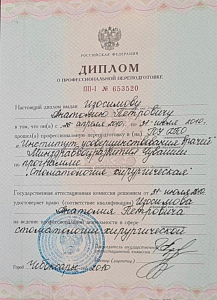 РОССИЙСКАЯ ФЕДЕРАЦИЯ
ДИПЛОМ
О ПРОФЕССИОНАЛЬНОЙ ПЕРЕПОДГОТОВКЕ
ПП-I № 653520
Настоящий диплом выдан Изосимову
Анатолию Петровичу
в том, что он(а) с 20 апреля 2010г. по 31 июля 2010г.
прошел(а) профессиональную переподготовку в (на) ГОУ ДПО
"Институт усовершенствования врачей"
Минздравсоцразвития Чувашии
программе
"Стоматология хирургическая"
Государственная аттестационная комиссия решением от 31 июля 2010
удостоверяет право (соответствие квалификации) Изосимова
Анатолия Петровича
на ведение профессиональной деятельности в сфере
стоматологии хирургической
Город Чебоксары 2010